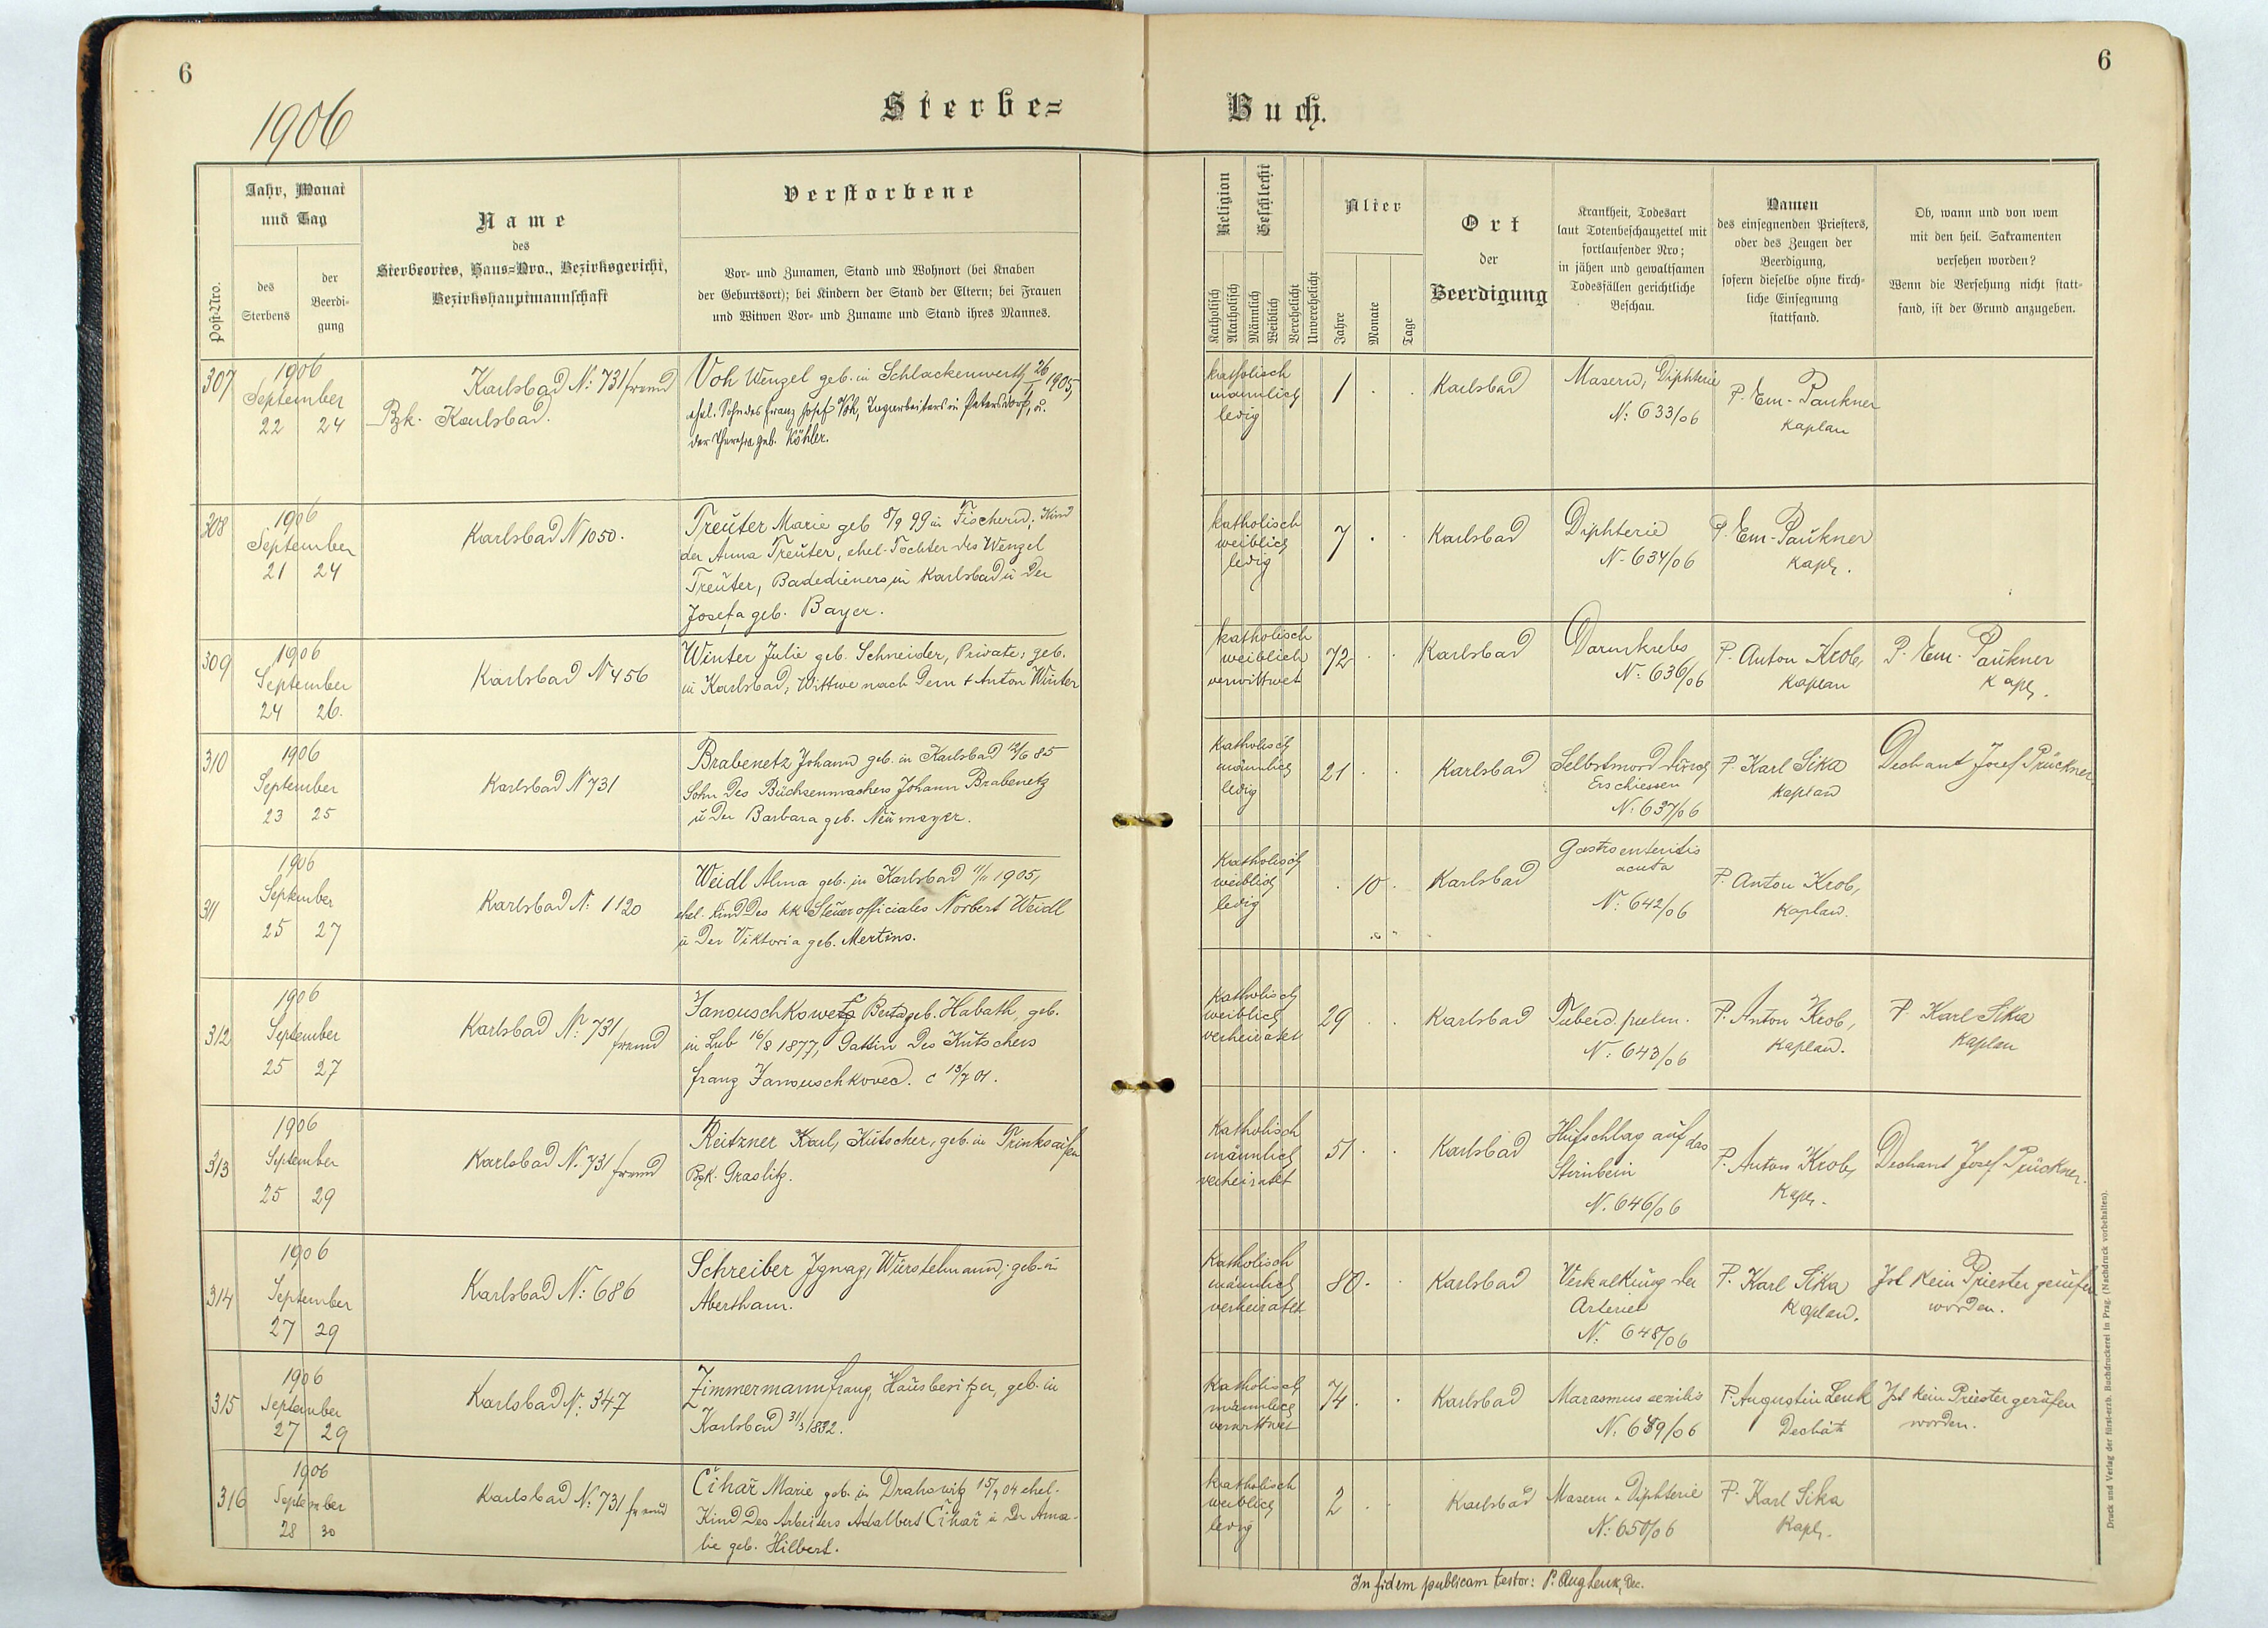 6
1906
Sterbe=
Jahr, Monat
und Tag
Post-Nro.
des
Sterbens
der
Beerdi-
gung
Name
des
Sterbeortes, Haus=Nro., Bezirksgericht,
Bezirkshauptmannschaft
Verstorbene
Vor- und Zunamen, Stand und Wohnort (bei Knaben
der Geburtsort); bei Kindern der Stand der Eltern; bei Frauen
und Witwen Vor- und Zuname und Stand ihres Mannes.
307
1906
September
22 24
Karlsbad N: 731 fremd
Bzk. Karlsbad.
Voh Wenzel geb. in Schlackenwerth 26/1 1905,
ehel. Sohn des Franz Josef Voh, Tagarbeiters in Petersdorf, u.
der Theresia geb. Köhler.
308
1906
September
21 24
Karlsbad N 1050.
Treuter Marie geb 8/9 99 in Fischern; Kind
der Anna Treuter, ehel. Tochter des Wenzel
Treuter, Badedieners in Karlsbad u der
Josefa geb. Bayer.
309
1906
September
24 26.
Karlsbad N 456
Winter Julie geb. Schneider, Private; geb.
in Karlsbad; Wittwe nach dem † Anton Winter
310
1906
September
23 25
Karlsbad N 731
Brabenetz Johann geb. in Karlsbad 12/6 85
Sohn des Büchsenmachers Johann Brabenetz
u der Barbara geb. Neumeyer.
311
1906
September
25 27
Karlsbad N: 1120
Weidl Alma geb. in Karlsbad 11/11 1905,
ehel. Kind des kk Steuerofficiales Norbert Weidl
u der Viktoria geb. Mertins.
312
1906
September
25 27
Karlsbad N: 731
fremd
Janouschkowetz Berta geb. Habath, geb.
in Lub 16/8 1877, Gattin des Kutschers
Franz Janouschkovec. c 13/7 01.
313
1906
September
25 29
Karlsbad N. 731 fremd
Reitzner Karl, Kutscher, geb. in Trinksaifen
Bzk. Graslitz.
314
1906
September
27 29
Karlsbad N: 686
Schreiber Ignaz, Würstelmann; geb. in
Abertham.
315
1906
September
27 29
Karlsbad N: 347
Zimmermann Franz, Hausbesitzer, geb. in
Karlsbad 31/3 1832.
316
1906
September
28 30
Karlsbad N: 731 fremd
Čihař Marie geb. in Drahowitz 15/9 04 ehel.
Kind des Arbeiters Adalbert Čihař u der Ama-
lie geb. Hilbert.
6
Buch.
Religion
Geschlecht
Katholisch
Akatholisch
Männlich
Weiblich
Verehelicht
Unverehelicht
Alter
Jahre
Monate
Tage
Ort
der
Beerdigung
Krankheit, Todesart
laut Totenbeschauzettel mit
fortlaufender Nro;
in jähen und gewaltsamen
Todesfällen gerichtliche
Beschau.
Namen
des einsegnenden Priesters,
oder des Zeugen der
Beerdigung,
sofern dieselbe ohne kirch-
liche Einsegnung
stattfand.
Ob, wann und von wem
mit den heil. Sakramenten
versehen worden?
Wenn die Versehung nicht statt-
fand, ist der Grund anzugeben.
katholisch
männlich
ledig
1
Karlsbad
Masern, Diphterie
N: 633/06
P. Em. Paukner
Kaplan
katholisch
weiblich
ledig
7
Karlsbad
Diphterie
N. 634/06
P. Em. Paukner
Kapl.
katholisch
weiblich
verwittwet
72
Karlsbad
Darmkrebs
N. 636/06
P. Anton Krob,
Kaplan
P. Em. Paukner
Kapl.
Katholisch
männlich
ledig
21
Karlsbad
Selbstmord durch
Erschiessen
N. 637/06
P. Karl Sika
Kaplan
Dechant Josef Prückner
Katholisch
weiblich
ledig
10
Karlsbad
Gastroenteritis
acuta
N: 642/06
P. Anton Krob,
Kaplan.
Katholisch
weiblich
verheiratet
29
Karlsbad
Tuberc. pulm.
N: 643/06
P. Anton Krob,
Kaplan.
P. Karl Sika
Kaplan
Katholisch
männlich
verheiratet
51
Karlsbad
Hufschlag auf das
Stirnbein
N. 646/06
P. Anton Krob,
Kapl.
Dechant Josef Prückner.
Katholisch
männlich
verheiratet
80
Karlsbad
Verkalkung der
Arterien
N: 648/06
P. Karl Sika
Kaplan.
Ist kein Priester gerufen
worden.
Katholisch
männlich
verwittwet
74
Karlsbad
Marasmus senilis
N. 649/06
P. Augustin Lenk
Dechant
Ist kein Priester gerufen
worden.
katholisch
weiblich
ledig
2
Karlsbad
Masern u Diphterie
N: 650/06
P. Karl Sika
Kapl.
In fidem publicam testor: P. Aug Lenk, Dec.
Druck und Verlag der fürst-erzb. Buchdruckerei in Prag. (Nachdruck vorbehalten).